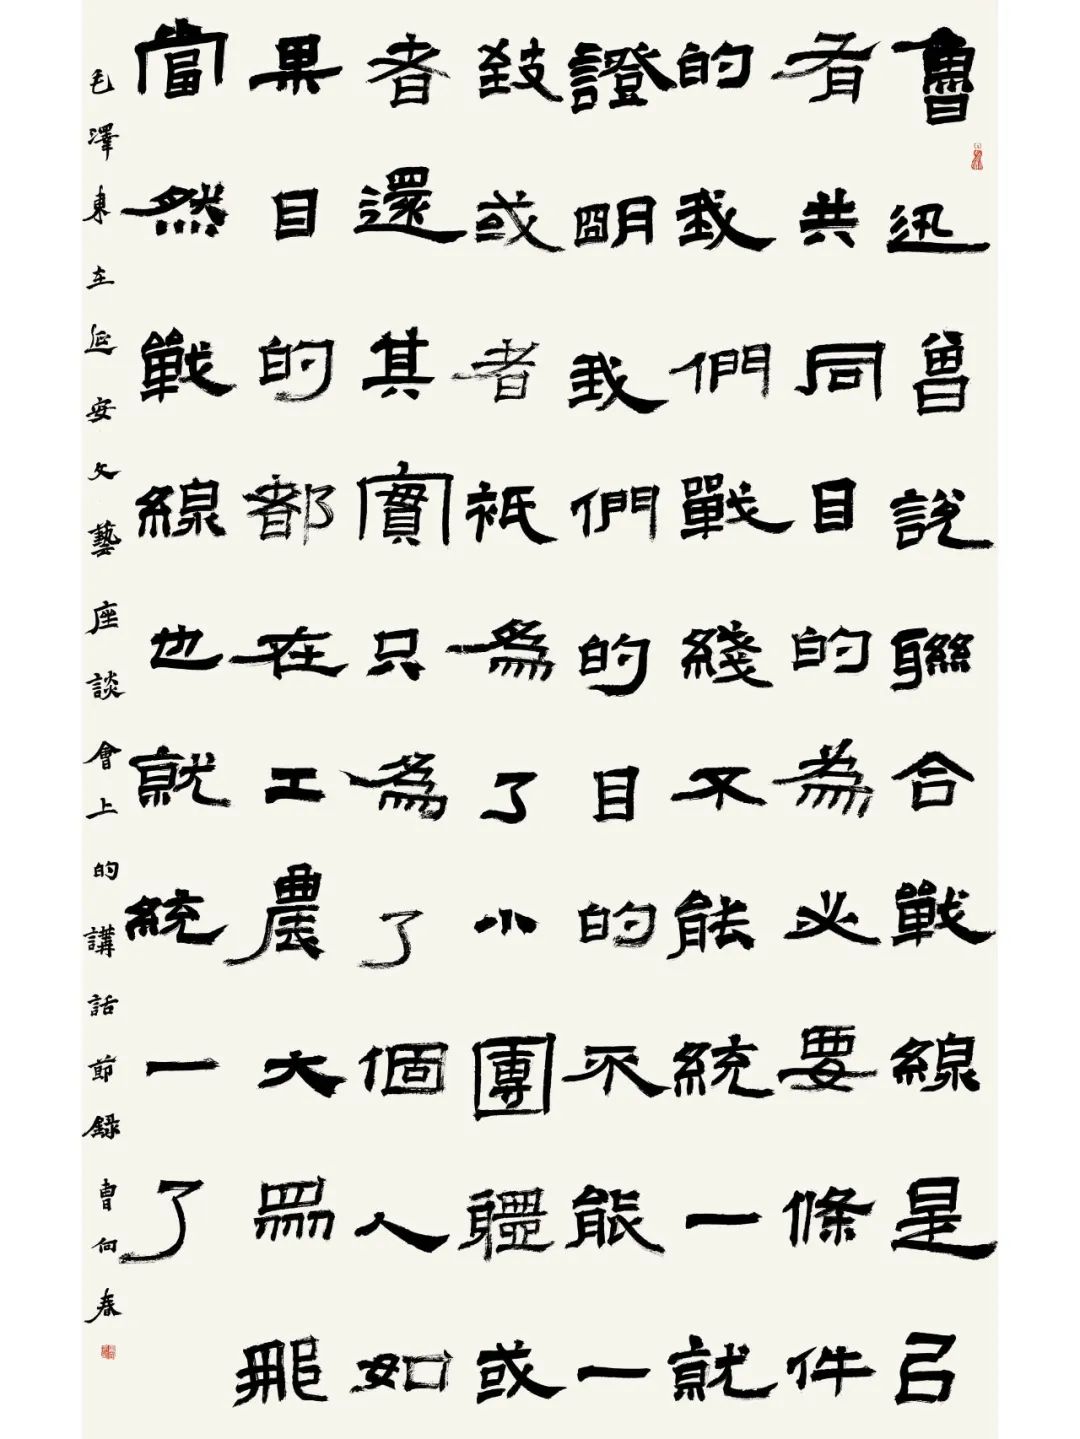 魯迅曾說聯合戰線是以
有共同目的為必要條件
的我們戰綫不能統一就
證明我們的目的不能一
致或者祇為了小團體或
者還其實只為了個人如
果目的都在工農大眾那
當然戰線也就統一了
毛澤東在延安文藝座談會上的講話節錄 曹向春